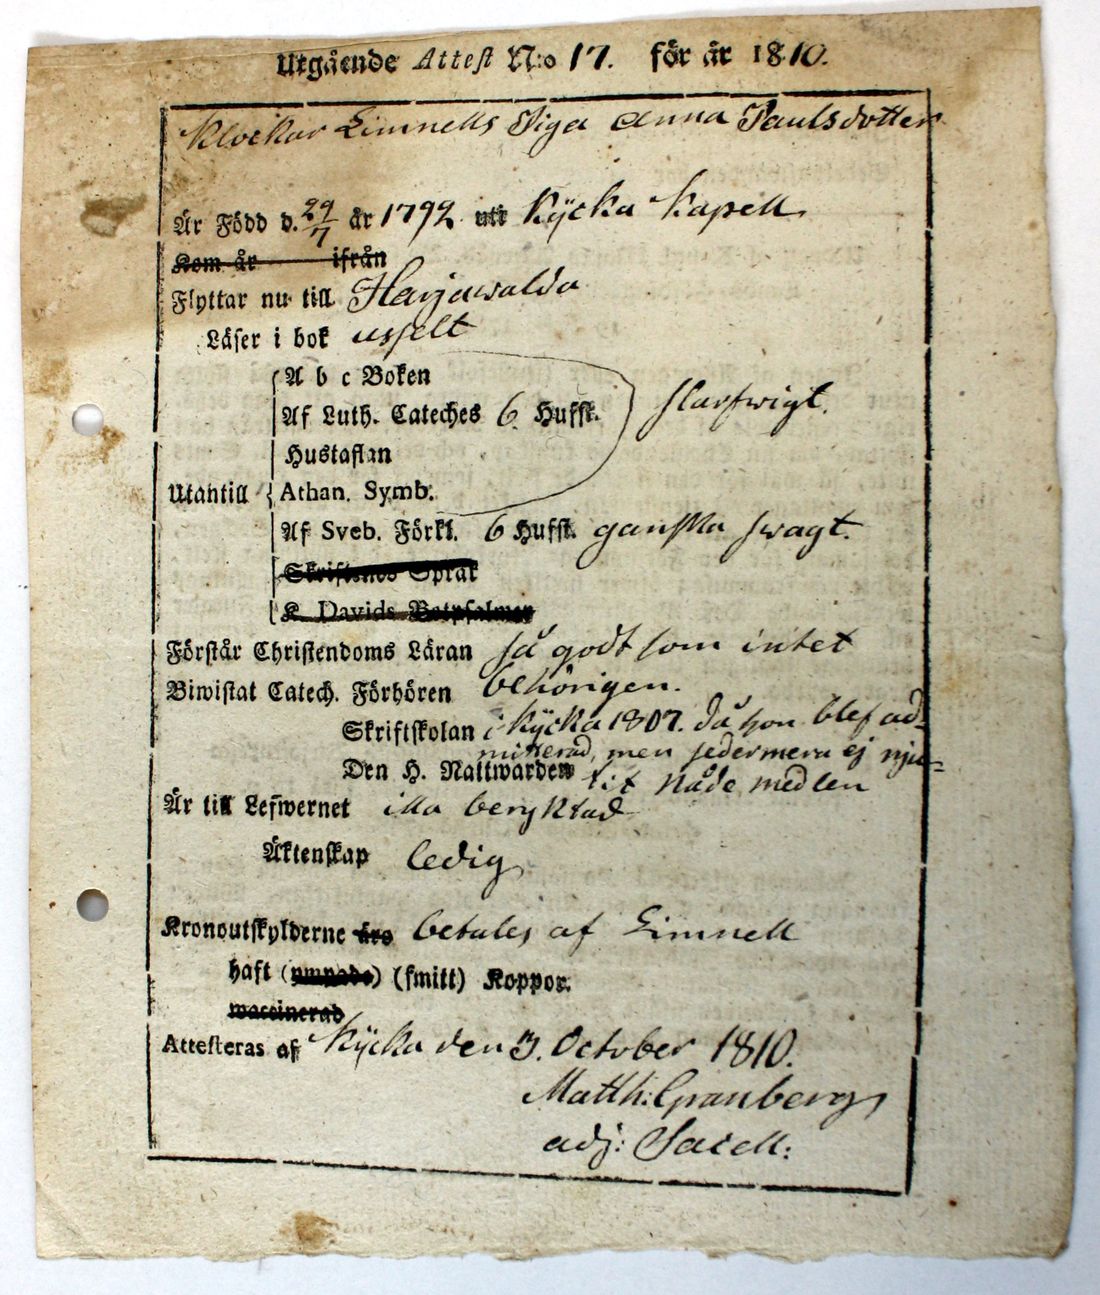 Utgående Attest N:o 17. för år 1810.
Klockar Limnells Piga Anna Paulsdotter
Är Född d. 29/7 år 1792 uti Kÿcka Kapell
Kom år ifrån
Flyttar nu till Harjawalda
Läser i bok usselt
A b c Boken
Af Luth. Cateches 6 Hufst. slarfwigt.
Hustaflan
Utantill Athan. Symb.
Af Sveb. Förkl. 6 Hufst. ganska swagt.
Skriftenes Språk
K. Davids Botpsalmer
Förstår Christendoms Läran så godt som intet
Biwistat Catech. Förhören behörigen.
Skriftskolan i Kÿcka 1807. då hon blef ad-
mitterad, men sedermera ej nju-
Den H. Nattwarden tit Nåde medlen
Är till Lefwernet illa beryktad
Äktenskap ledig
Kronoutskylderne äro betales af Limnell
haft (ympade) (smitt) Koppor.
waccinerad
Attesteras af Kÿcka den 3. October 1810.
Matth: Granberg
adj: Sacell: